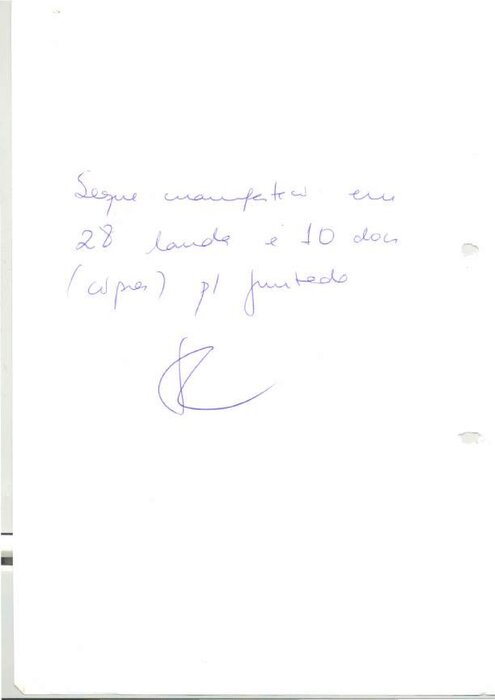 Segue manifestação em
28 laudas e 10 docs
(cópias) p/ juntada